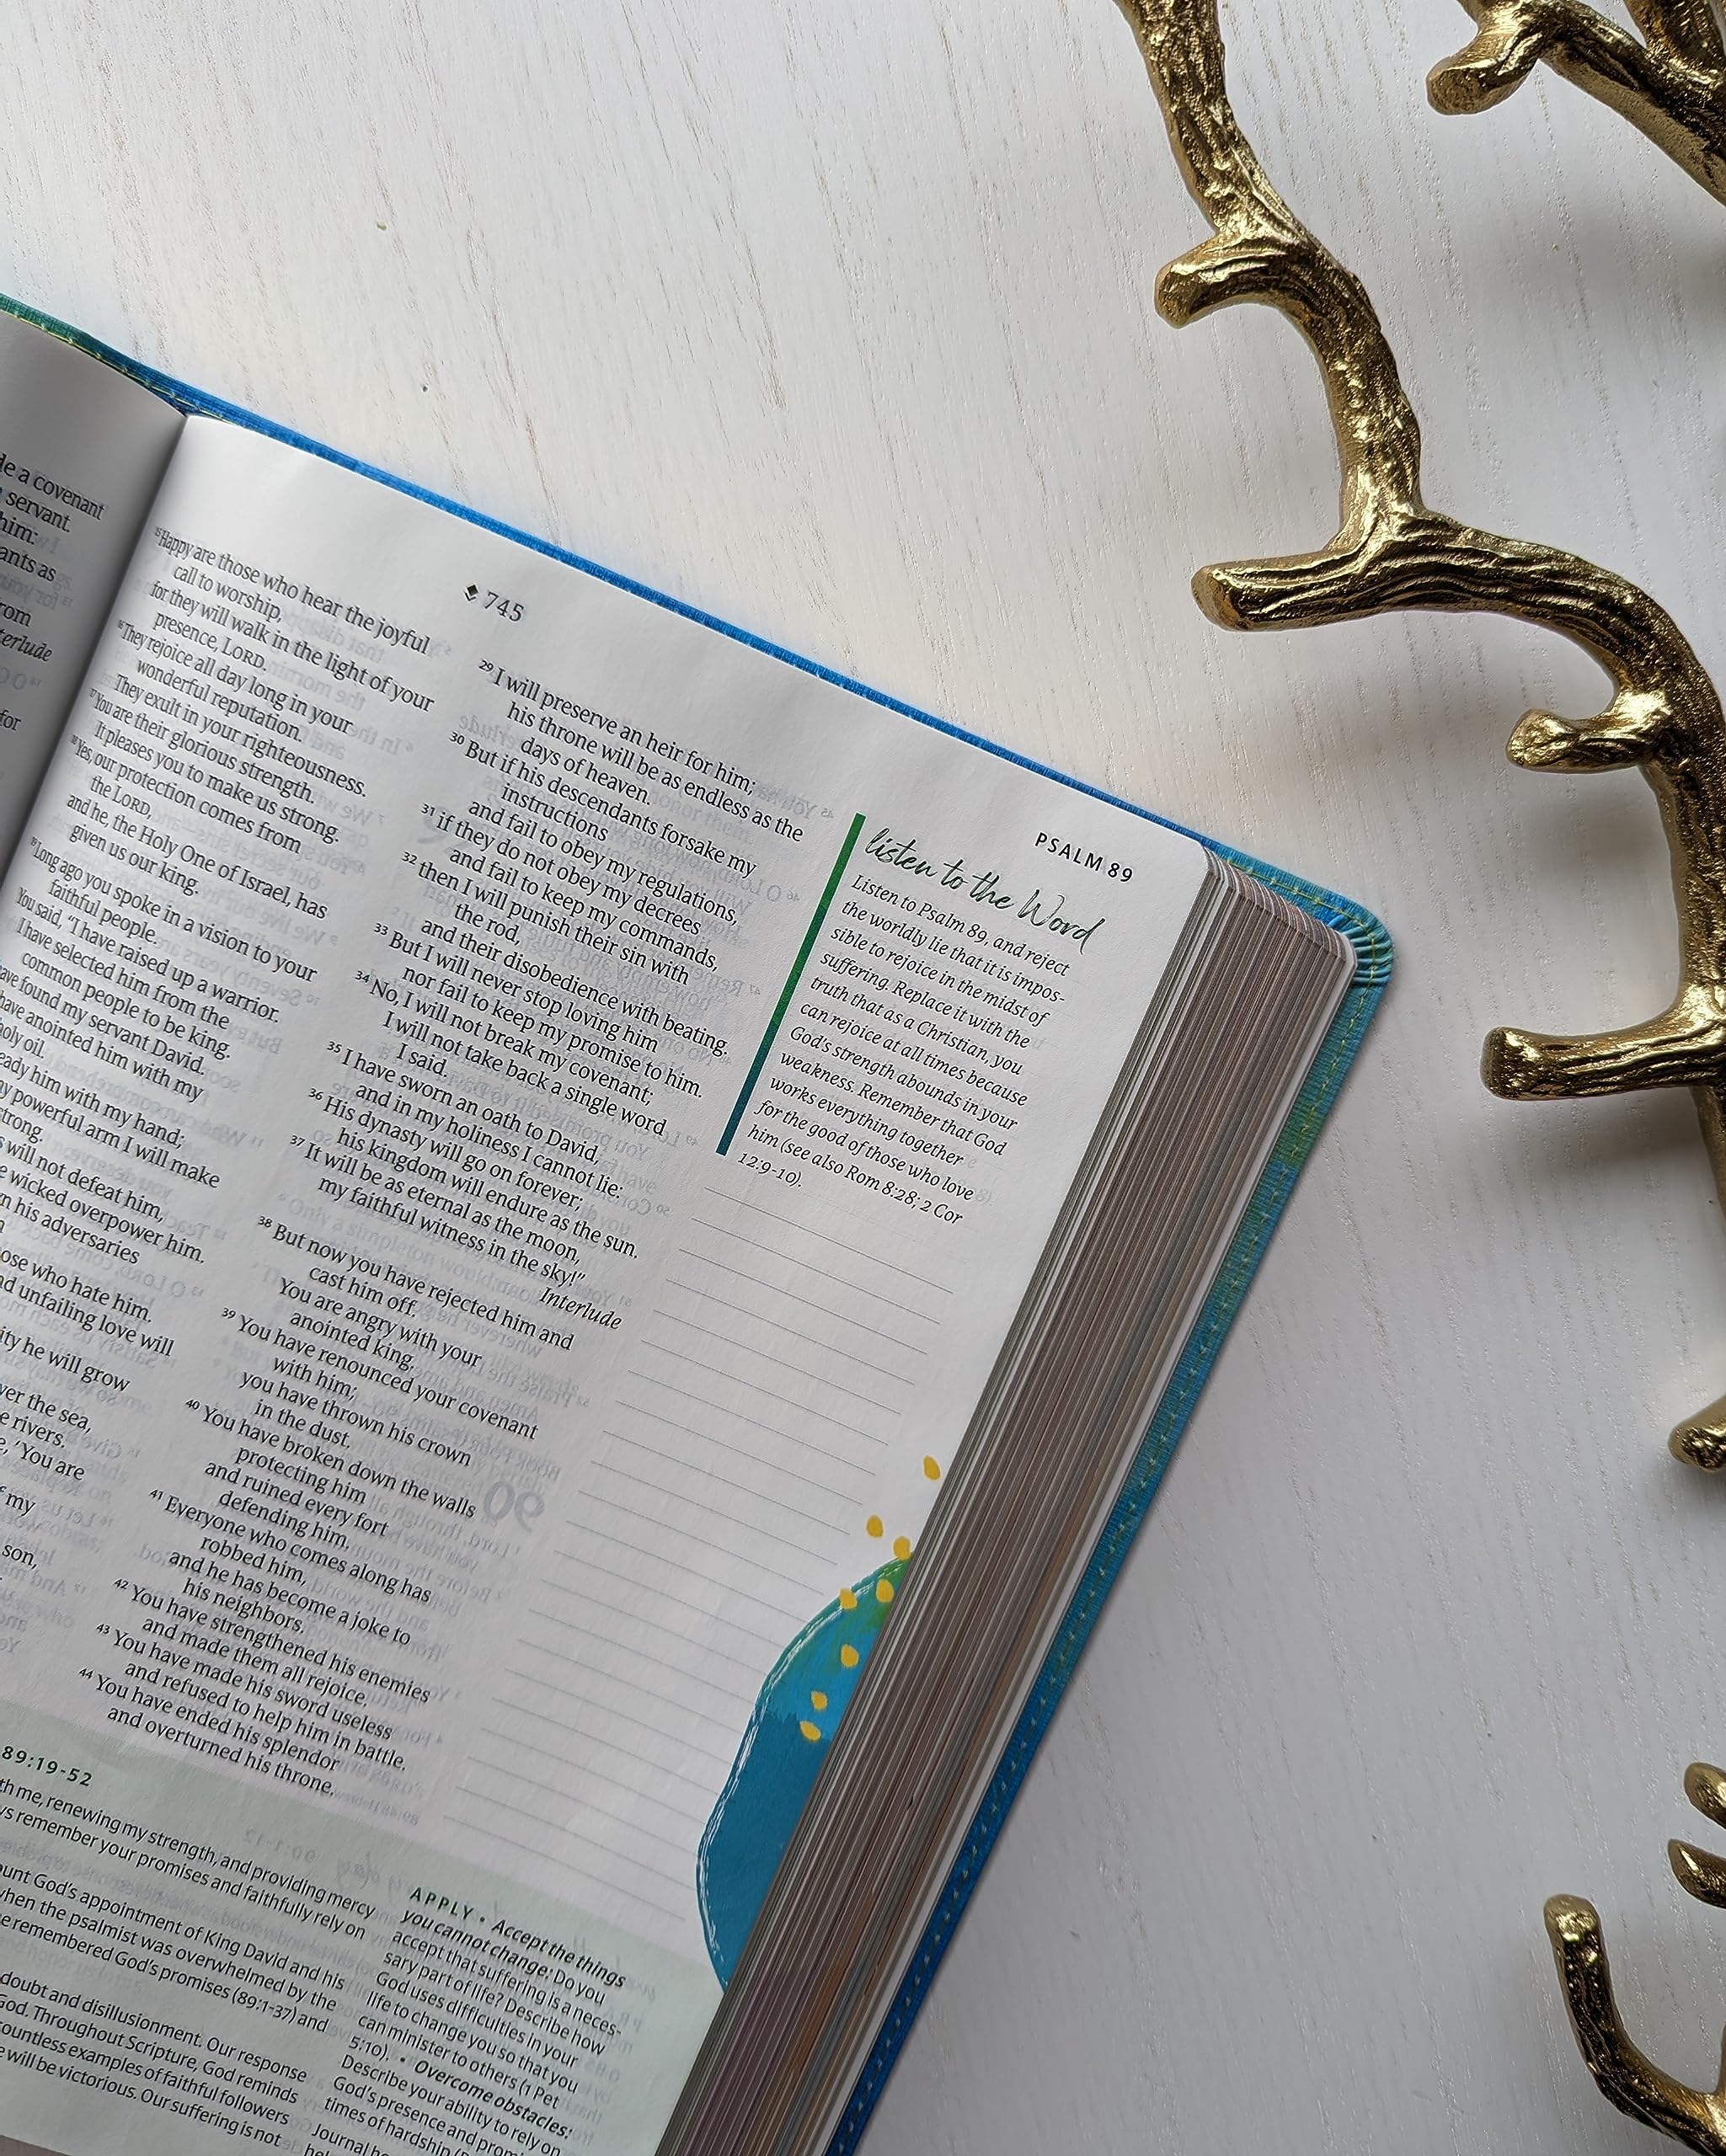 de a covenant
servant.
him:
ants as
rom
terlude
for
745
PSALM 89
15 Happy are those who hear the joyful
call to worship,
for they will walk in the light of your
presence, LORD.
16 They rejoice all day long in your
wonderful reputation.
They exult in your righteousness.
17 You are their glorious strength.
It pleases you to make us strong.
18 Yes, our protection comes from
the LORD,
and he, the Holy One of Israel, has
given us our king.
19 Long ago you spoke in a vision to your
faithful people.
You said, "I have raised up a warrior.
I have selected him from the
common people to be king.
ave found my servant David.
have anointed him with my
holy oil.
eady him with my hand;
y powerful arm I will make
strong.
s will not defeat him,
e wicked overpower him.
n his adversaries
ose who hate him.
nd unfailing love will
ity he will grow
ver the sea,
e rivers.
, 'You are
f my
son,
29 I will preserve an heir for him;
his throne will be as endless as the
days of heaven.
30 But if his descendants forsake my
instructions
and fail to obey my regulations,
31 if they do not obey my decrees
and fail to keep my commands,
32 then I will punish their sin with
the rod,
and their disobedience with beating.
33 But I will never stop loving him
nor fail to keep my promise to him.
34 No, I will not break my covenant;
I will not take back a single word
I said.
35 I have sworn an oath to David,
and in my holiness I cannot lie:
36 His dynasty will go on forever;
his kingdom will endure as the sun.
37 It will be as eternal as the moon,
my faithful witness in the sky!"
Interlude
38 But now you have rejected him and
cast him off.
You are angry with your
anointed king.
39 You have renounced your covenant
with him;
you have thrown his crown
in the dust.
40 You have broken down the walls
protecting him
and ruined every fort
defending him.
41 Everyone who comes along has
robbed him,
and he has become a joke to
his neighbors.
42 You have strengthened his enemies
and made them all rejoice.
43 You have made his sword useless
and refused to help him in battle.
44 You have ended his splendor
and overturned his throne.
listen to the Word
Listen to Psalm 89, and reject
the worldly lie that it is impos-
sible to rejoice in the midst of
suffering. Replace it with the
truth that as a Christian, you
can rejoice at all times because
God's strength abounds in your
weakness. Remember that God
works everything together
for the good of those who love
him (see also Rom 8:28; 2 Cor
12:9-10).
89:19-52
th me, renewing my strength, and providing mercy
ys remember your promises and faithfully rely on
ount God's appointment of King David and his
when the psalmist was overwhelmed by the
e remembered God's promises (89:1-37) and
doubt and disillusionment. Our response
God. Throughout Scripture, God reminds
countless examples of faithful followers
e will be victorious. Our suffering is not
APPLY • Accept the things
you cannot change: Do you
accept that suffering is a neces-
sary part of life? Describe how
God uses difficulties in your
life to change you so that you
can minister to others (1 Pet
5:10). • Overcome obstacles:
Describe your ability to rely on
God's presence and promi
times of hardship
Journal